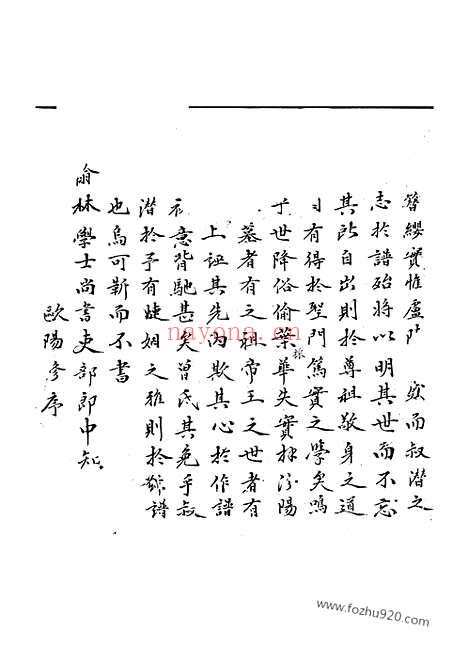 簪纓實惟盧陵 而叔潛之
志於譜殆將以明其世而不忘
其所自出則於尊祖敬身之道
有得於聖門篤實之學矣嗚
于世降俗偷業華失實拜汾陽
振
墓者有之祖帝王之世者有
上誣其先內欺其心於作譜
意背馳甚矣曾氏其免乎叔
潛於予有婕姻之雅則於譜
也烏可靳而不書
林學士尚書吏部郎中知
歐陽 序
nayona.cn
www.fozhu920.com